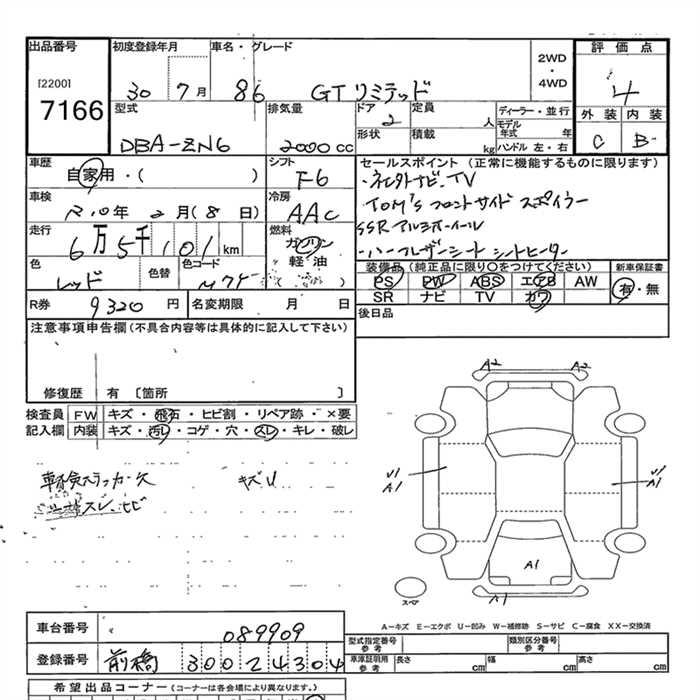 出品番号 初度登録年月 車名・グレード 2WD・4WD 評価点
[2200]
7166
30 7月 86 GTリミテッド 4
型式 排気量 ドア 定員 人 ディーラー・並行 外装 内装
DBA-ZN6 2000cc 2 形状 積載 kg モデル年式 年 ハンドル 左・右 C B
車歴 シフト セールスポイント(正常に機能するものに限ります)
自家用・( ) F6
車検 冷房 ・TV
R10年2月(8日) AAC TOM's フロントサイドスポイラー
走行 燃料 SSRアルミホイール
6万5千101km ガソリン ・ハーフレザーシート シートヒーター
色 色替 色コード 軽油
レッド ( )
装備品(純正品に限り○をつけてください) 新車保証書
PS PW ABS エアB AW 有・無
SR ナビ TV カワ
R券 9320円 名変期限 月 日 後日品
注意事項申告欄(不具合内容等は具体的に記入して下さい)
修復歴 有 〔箇所 〕
検査員 FW キズ・飛石・ヒビ割・リペア跡・×要
記入欄 内装 キズ・汚レ・コゲ・穴・スレ・キレ・破レ
A2 A2
キズU
スレ
U1 A1
U1 A1
A1
A1
スペア
A−キズ E−エクボ U−凹み W−補修跡 S−サビ C−腐食 XX−交換済
車台番号 089909
登録番号 前橋 300 2 4304
型式指定番号 参考 類別区分番号 参考
車庫証明用 参考 長さ cm 幅 cm 高さ cm
希望出品コーナー(コーナーは各会場により異なります。)